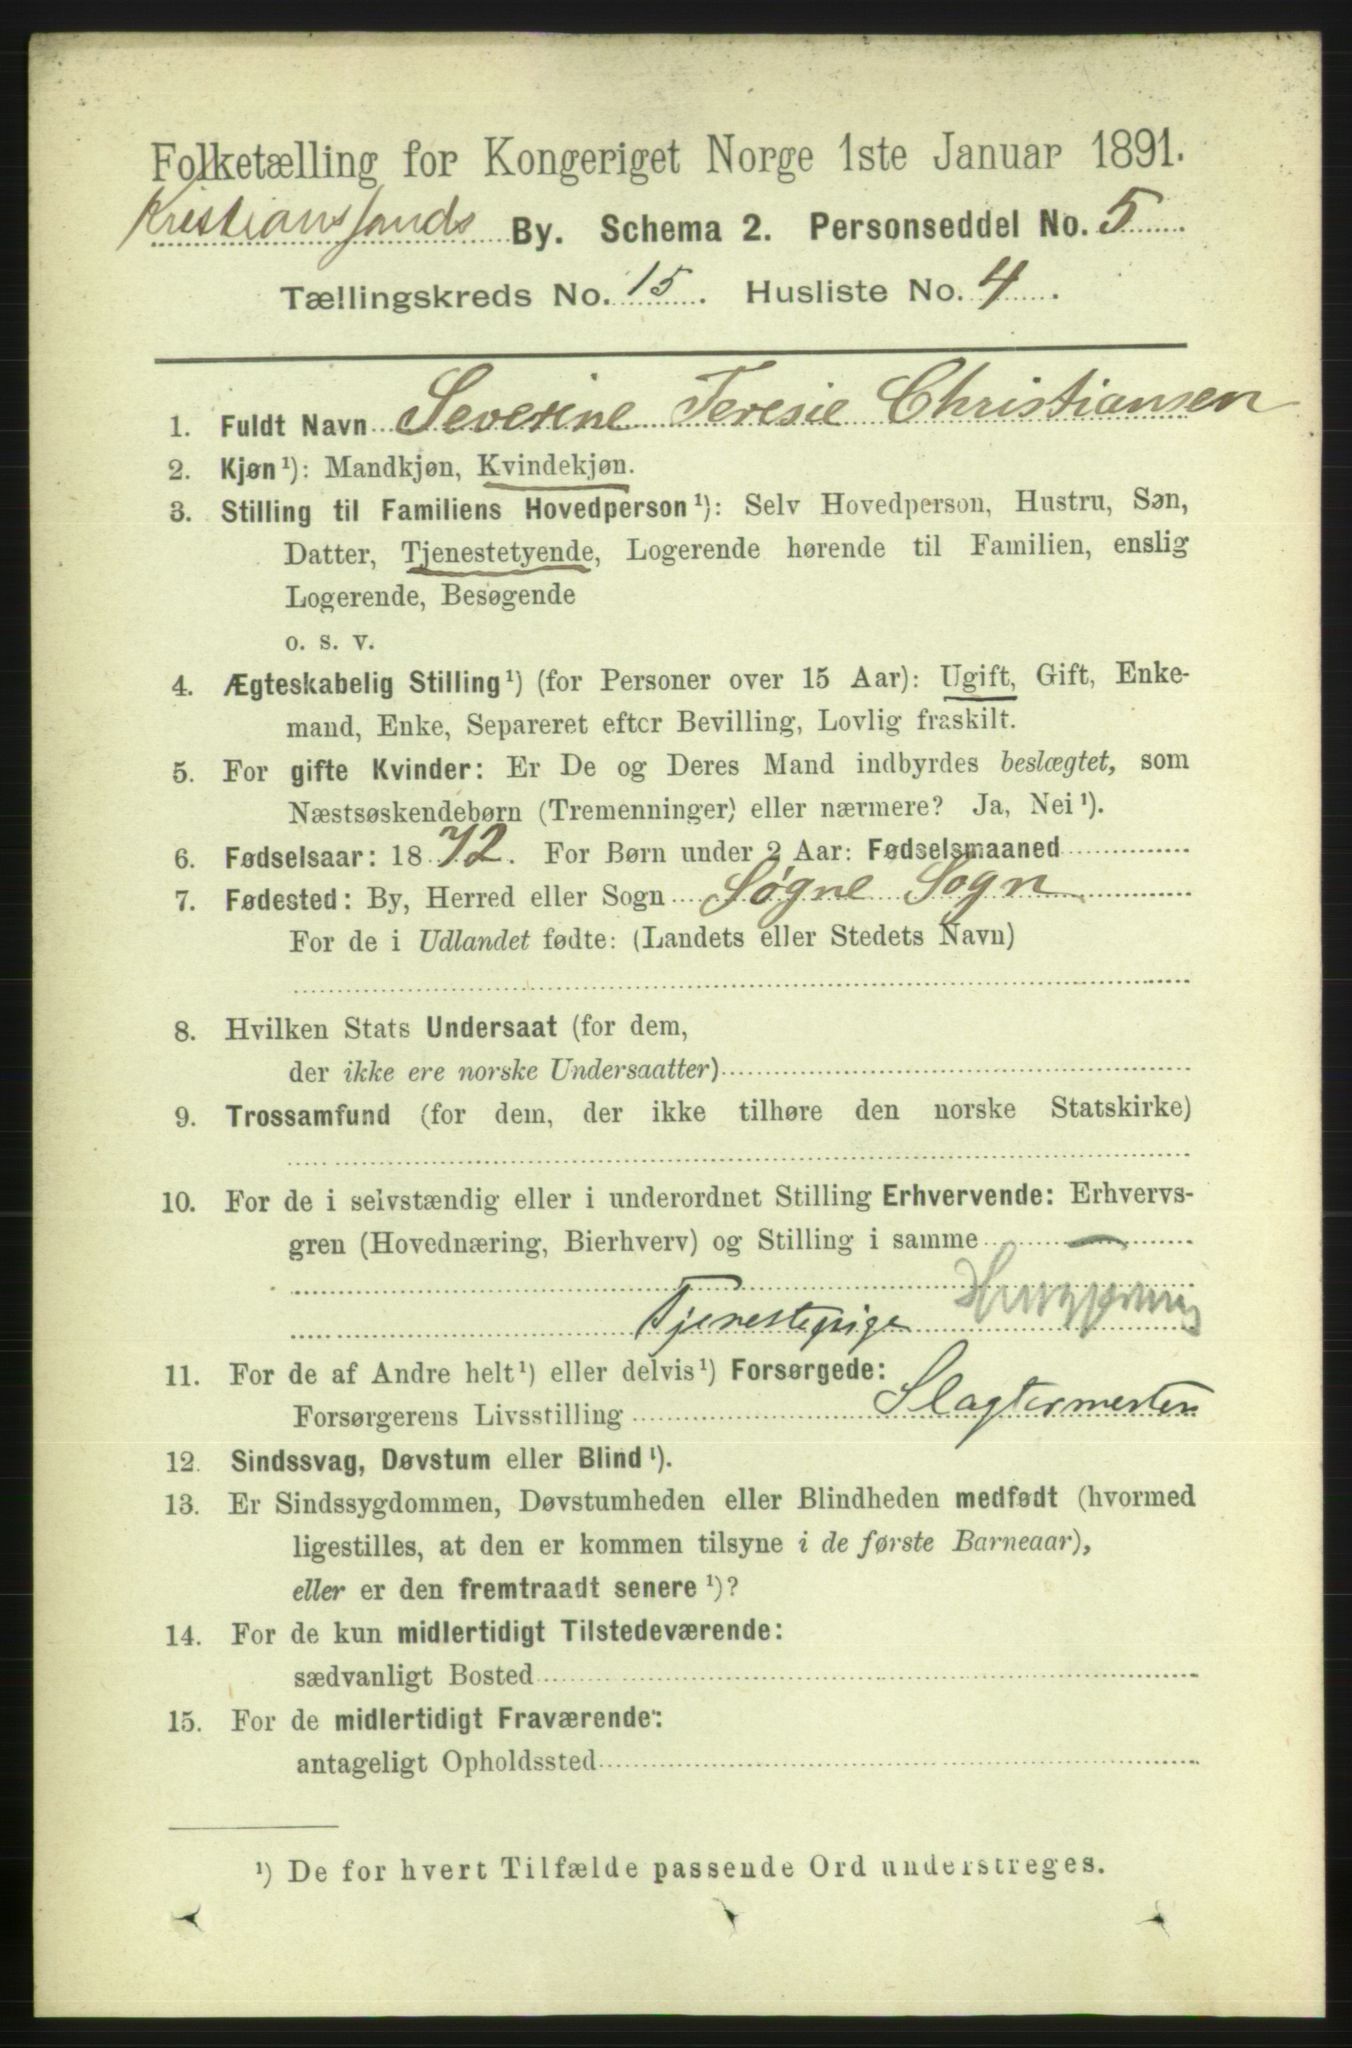 Folketælling for Kongeriget Norge 1ste Januar 1891.
Kristianssands By. Schema 2. Personseddel No. 5
Tællingskreds No. 15. Husliste No. 4.
1. Fuldt Navn Severine Teresie Christiansen
2. Kjøn¹): Mandkjøn, Kvindekjøn.
3. Stilling til Familiens Hovedperson¹): Selv Hovedperson, Hustru, Søn,
Datter, Tjenestetyende, Logerende hørende til Familien, enslig
Logerende, Besøgende
o. s. v.
4. Ægteskabelig Stilling¹) (for Personer over 15 Aar): Ugift, Gift, Enke-
mand, Enke, Separeret efter Bevilling, Lovlig fraskilt.
5. For gifte Kvinder: Er De og Deres Mand indbyrdes beslægtet, som
Næstsøskendebørn (Tremenninger) eller nærmere? Ja, Nei¹).
6. Fødselsaar: 1872. For Børn under 2 Aar: Fødselsmaaned
7. Fødested: By, Herred eller Sogn Søgne Sogn
For de i Udlandet fødte: (Landets eller Stedets Navn)
8. Hvilken Stats Undersaat (for dem,
der ikke ere norske Undersaatter)
9. Trossamfund (for dem, der ikke tilhøre den norske Statskirke)
10. For de i selvstændig eller i underordnet Stilling Erhvervende: Erhvervs-
gren (Hovednæring, Bierhverv) og Stilling i samme
Tjenestepige
11. For de af Andre helt¹) eller delvis¹) Forsørgede:
Forsørgerens Livsstilling Slagtermester
12. Sindssvag, Døvstum eller Blind¹).
13. Er Sindssygdommen, Døvstumheden eller Blindheden medfødt (hvormed
ligestilles, at den er kommen tilsyne i de første Barneaar),
eller er den fremtraadt senere¹)?
14. For de kun midlertidigt Tilstedeværende:
sædvanligt Bosted
15. For de midlertidigt Fraværende:
antageligt Opholdssted
¹) De for hvert Tilfælde passende Ord understreges.